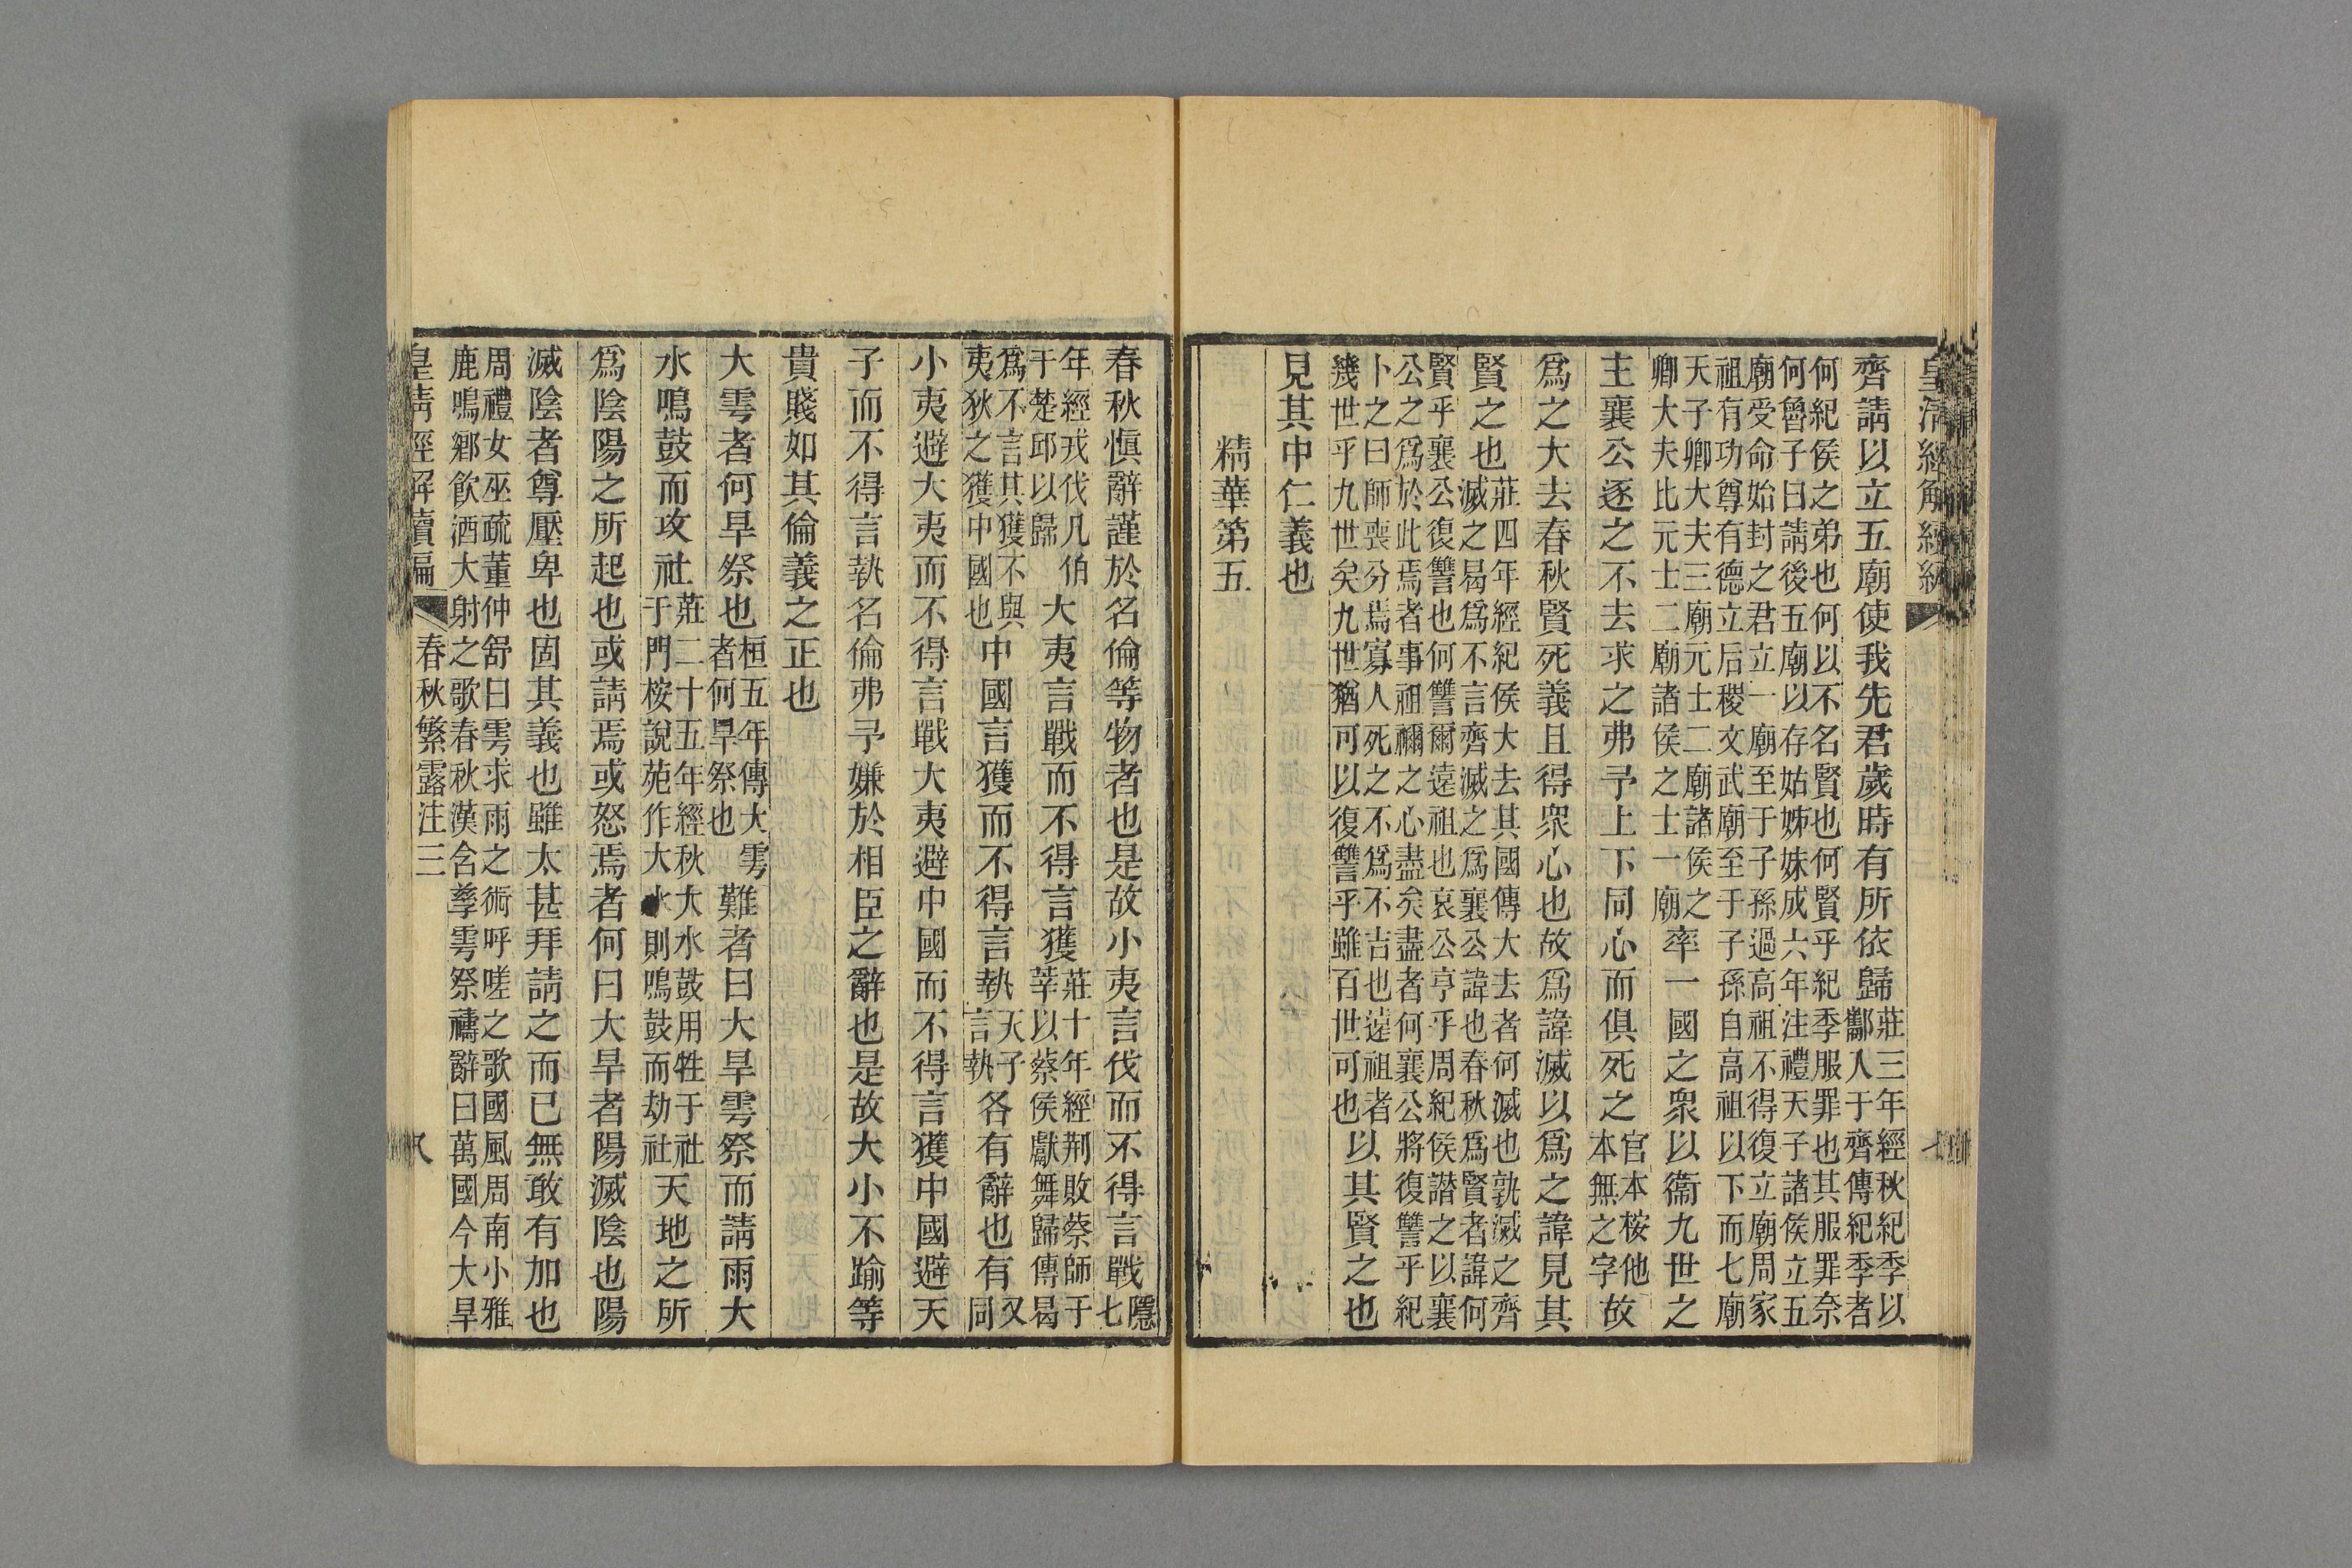 皇清經解經編
齊請以立五廟使我先君歲時有所依歸莊三年經秋紀季以酅人于齊傳紀季者
何紀侯之弟也何以不名賢也何賢乎紀季服罪也其服罪奈何魯子曰請後五廟以存姑姊妹成六年注禮天子諸侯立五
廟受命始封之君立一廟至于子孫過高祖不得復立廟周家祖有功尊有德立后稷文武廟至于子孫自高祖以下而七廟
天子卿大夫三廟元士二廟諸侯之卿大夫比元士二廟諸侯之士一廟率一國之衆以衞九世之
主襄公逐之不去求之弗予上下同心而俱死之官本桉他本無之字故
爲之大去春秋賢死義且得衆心也故爲諱滅以爲之諱見其
賢之也莊四年經紀侯大去其國傳大去者何滅也孰滅之齊滅之曷爲不言齊滅之爲襄公諱也春秋爲賢者諱何
賢乎襄公復讐也何讐爾遠祖也哀公亨乎周紀侯譖之以襄公之爲於此焉者事祖禰之心盡矣盡者何襄公將復讐乎紀
卜之曰師喪分焉寡人死之不爲不吉也遠祖者幾世乎九世矣九世猶可以復讐乎雖百世可也以其賢之也
見其中仁義也
精華第五
春秋愼辭謹於名倫等物者也是故小夷言伐而不得言戰隱七
年經戎伐凡伯于楚邱以歸大夷言戰而不得言獲莊十年經荆敗蔡師于莘以蔡侯獻舞歸傳曷
爲不言其獲不與夷狄之獲中國也中國言獲而不得言執天子言執各有辭也有又同
小夷避大夷而不得言戰大夷避中國而不得言獲中國避天
子而不得言執名倫弗予嫌於相臣之辭也是故大小不踰等
貴賤如其倫義之正也
大雩者何旱祭也桓五年傳大雩者何旱祭也難者曰大旱雩祭而請雨大
水鳴鼓而攻社莊二十五年經秋大水鼓用牲于社于門桉說苑作大水則鳴鼓而劫社天地之所
爲陰陽之所起也或請焉或怒焉者何曰大旱者陽滅陰也陽
滅陰者尊壓卑也固其義也雖太甚拜請之而已無敢有加也
周禮女巫疏董仲舒曰雩求雨之術呼嗟之歌國風周南小雅鹿鳴鄉飮酒大射之歌春秋漢含孳雩祭禱辭曰萬國今大旱
皇淸經解續編 春秋繁露注三 八